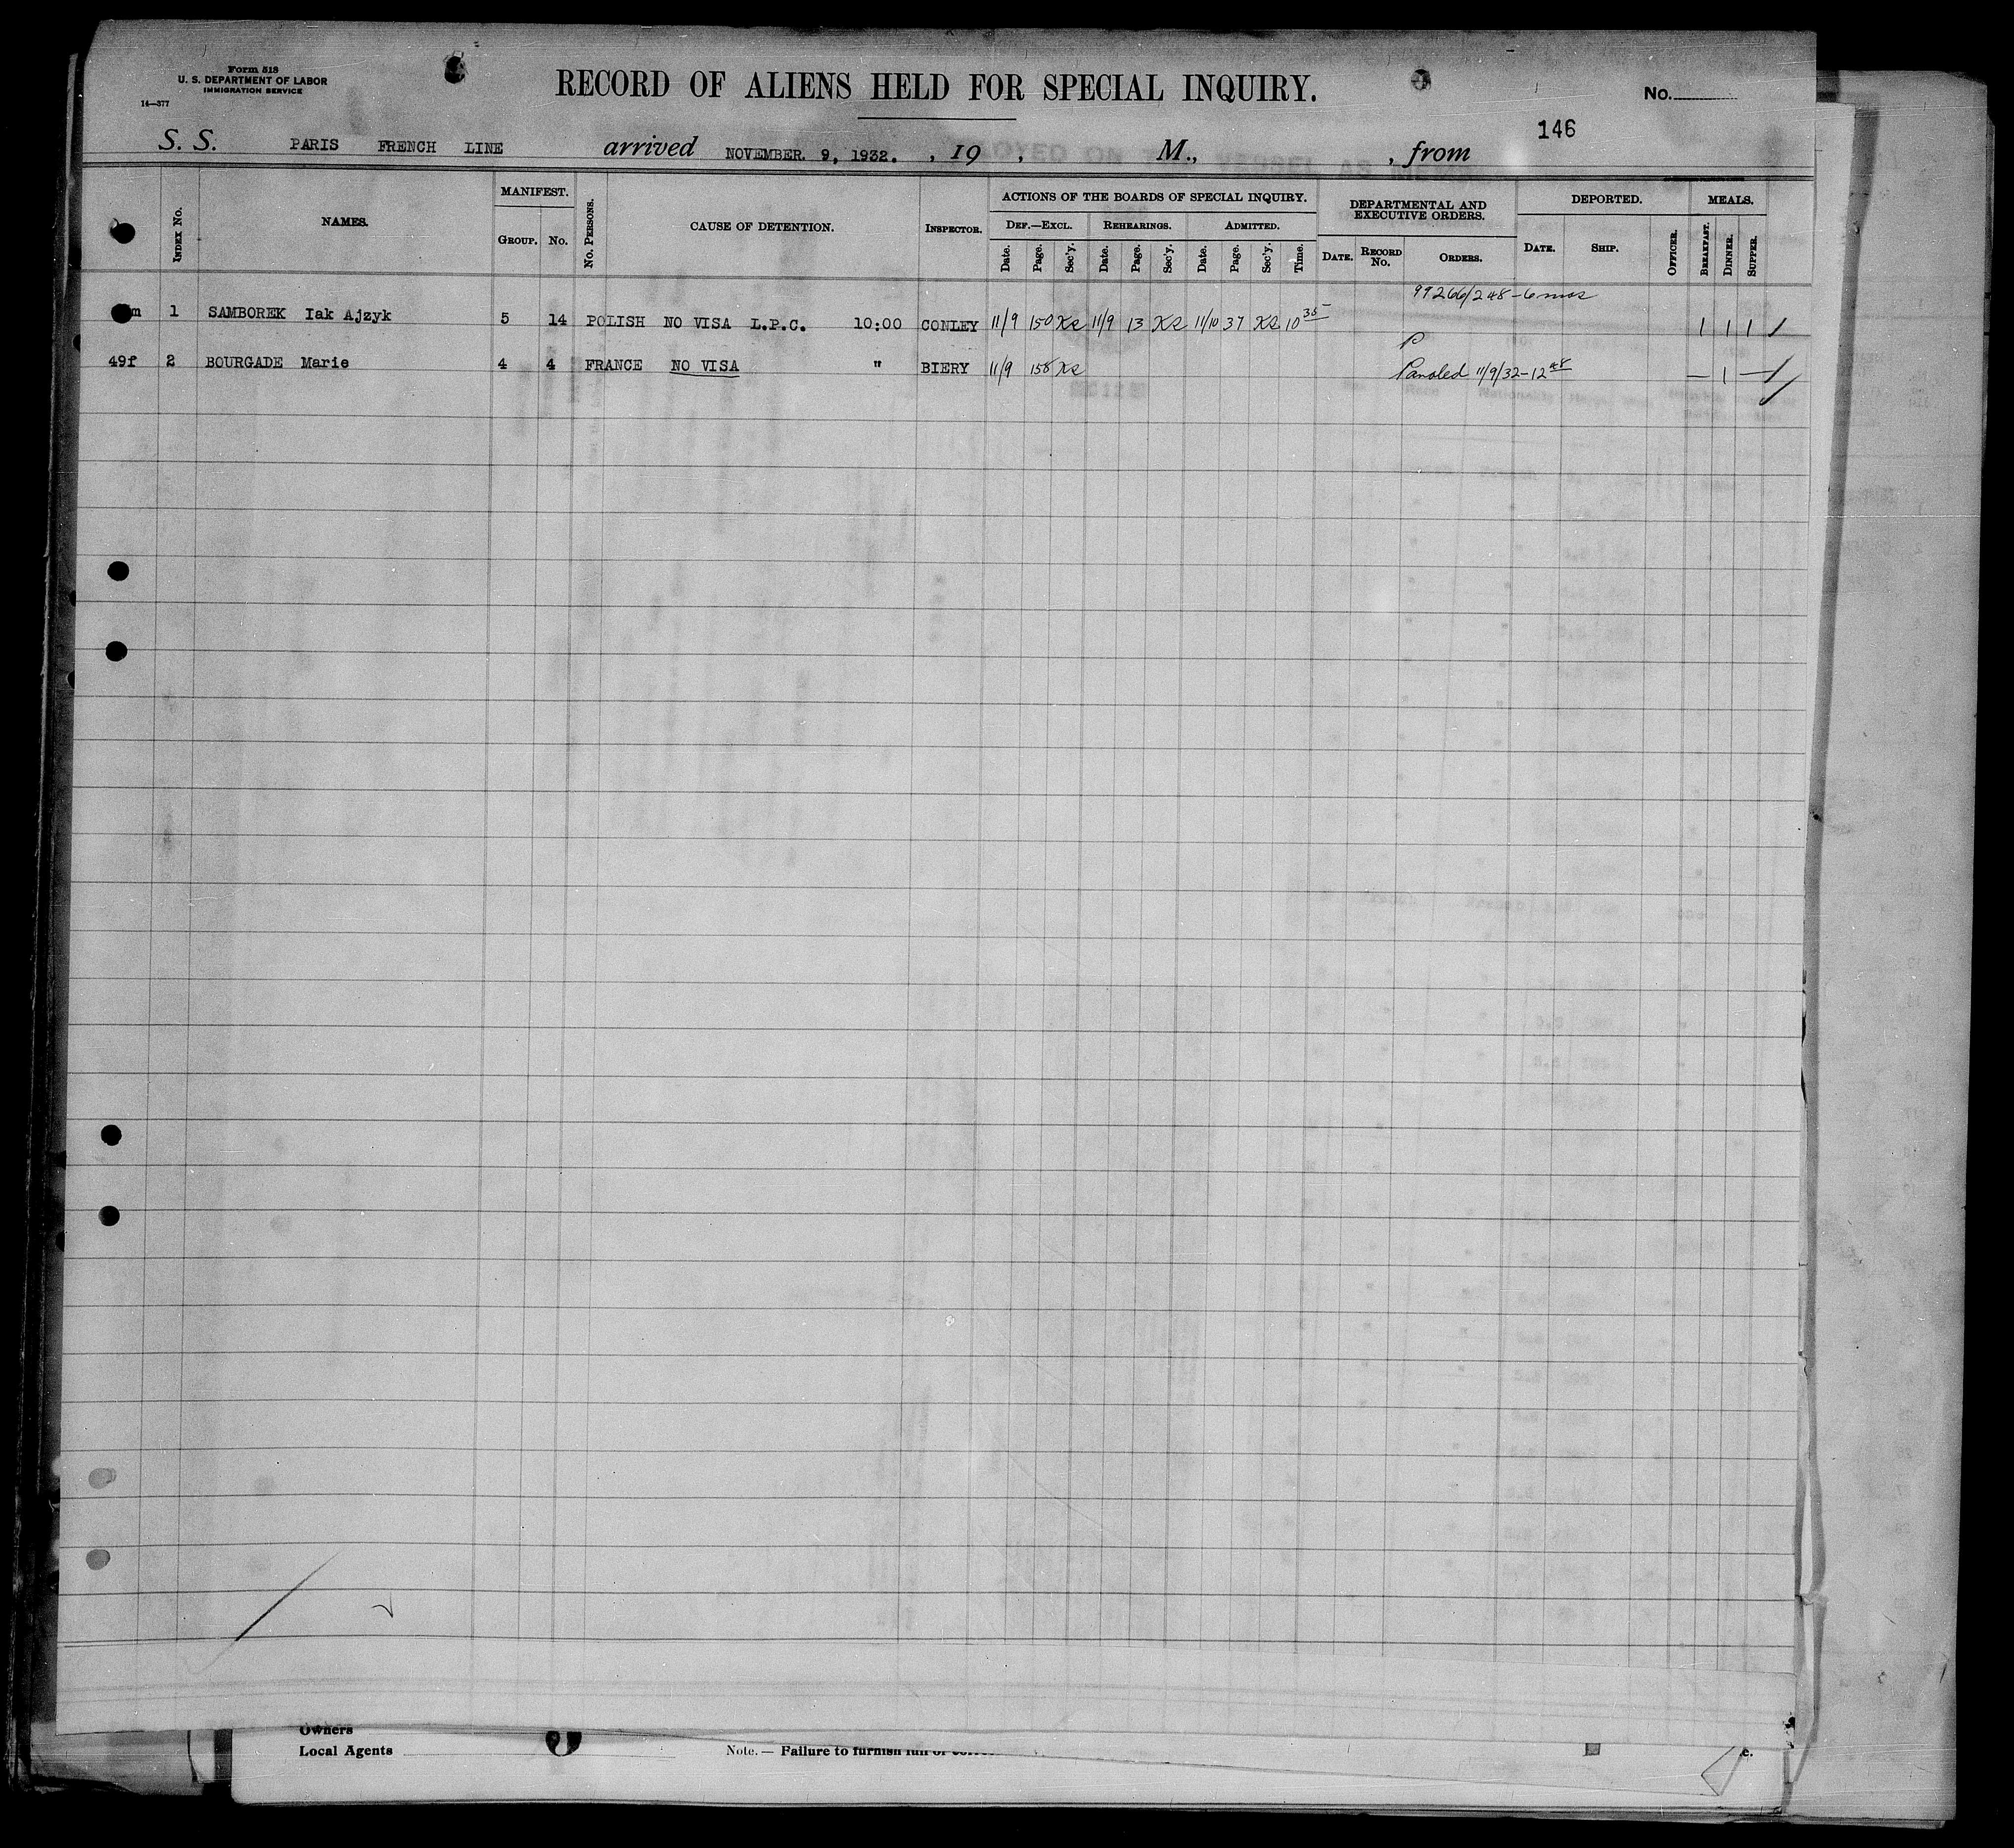 Form 518
U. S. DEPARTMENT OF LABOR
IMMIGRATION SERVICE
14—377
RECORD OF ALIENS HELD FOR SPECIAL INQUIRY.
No.
146
S. S. PARIS FRENCH LINE arrived NOVEMBER 9, 1932. , 19 , M., , from
INDEX No.
NAMES.
MANIFEST.
GROUP. No.
No. PERSONS.
CAUSE OF DETENTION.
INSPECTOR.
ACTIONS OF THE BOARDS OF SPECIAL INQUIRY.
DEF.—EXCL. REHEARINGS. ADMITTED.
Date. Page. Sec'y. Date. Page. Sec'y. Date. Page. Sec'y. Time.
DEPARTMENTAL AND
EXECUTIVE ORDERS.
DATE. RECORD No. ORDERS.
DEPORTED.
DATE. SHIP. OFFICER.
MEALS.
BREAKFAST. DINNER. SUPPER.
99266/248-6 mos
m 1 SAMBOREK Iak Ajzyk 5 14 POLISH NO VISA L.P.C. 10:00 CONLEY 11/9 150 KS 11/9 13 KS 11/10 37 KS 10 35 1 1 1
P
49f 2 BOURGADE Marie 4 4 FRANCE NO VISA " BIERY 11/9 158 KS Paroled 11/9/32-12 48 — 1 —
Owners
Local Agents
Note.— Failure to furnish full or
e.